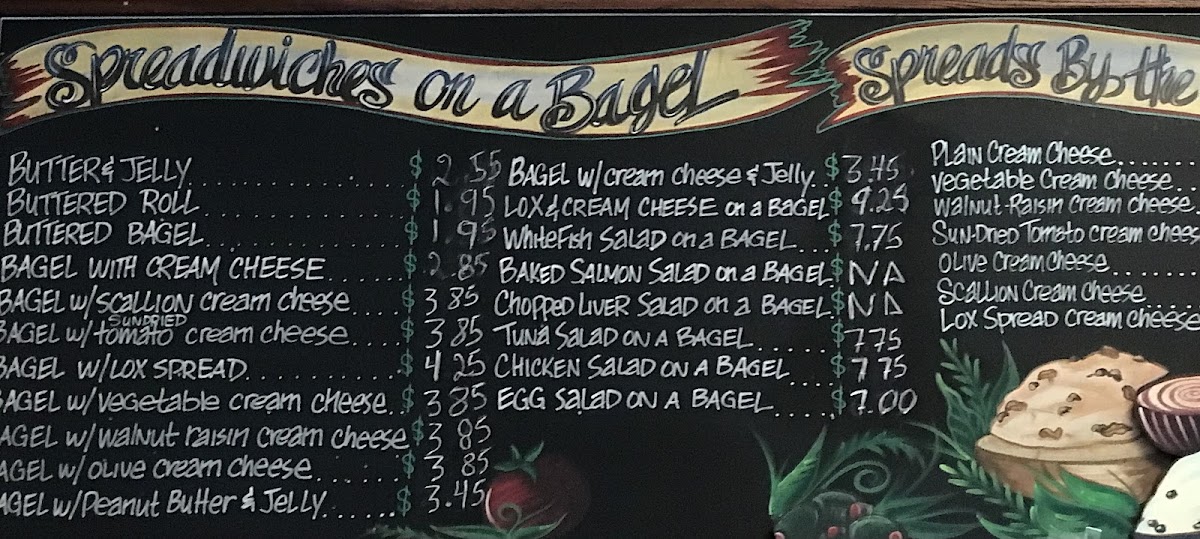 Spreadwiches on a Bagel
BUTTER & JELLY $ 2.55
BUTTERED ROLL $ 1.95
BUTTERED BAGEL $ 1.95
BAGEL WITH CREAM CHEESE $ 2.85
BAGEL w/SCALLION cream cheese $ 3 85
BAGEL w/ SUNDRIED tomato cream cheese $ 3.85
BAGEL w/LOX SPREAD $ 4 25
BAGEL w/vegetable cream cheese $ 3 85
AGEL w/walnut raisin cream cheese $ 3 85
AGEL w/olive cream cheese $ 3 85
AGEL w/Peanut Butter & JELLY $ 3.45
BAGEL w/cream cheese & Jelly $ 3.45
LOX & CREAM CHEESE on a BAGEL $ 9.25
WhiteFish SALAD on a BAGEL $ 7.75
BAKED SALMON SALAD on a BAGEL $ NA
Chopped LIVER SALAD on a BAGEL $ NA
TUNA SALAD ON A BAGEL $ 775
CHICKEN SALAD ON A BAGEL $ 7 75
EGG SALAD ON A BAGEL $ 7.00
Spreads By the
PLAIN Cream Cheese
Vegetable Cream Cheese
Walnut-Raisin Cream cheese
Sun-Dried Tomato cream chees
OLIVE Cream Cheese
SCALLION Cream Cheese
LOX SPREAD Cream Cheese